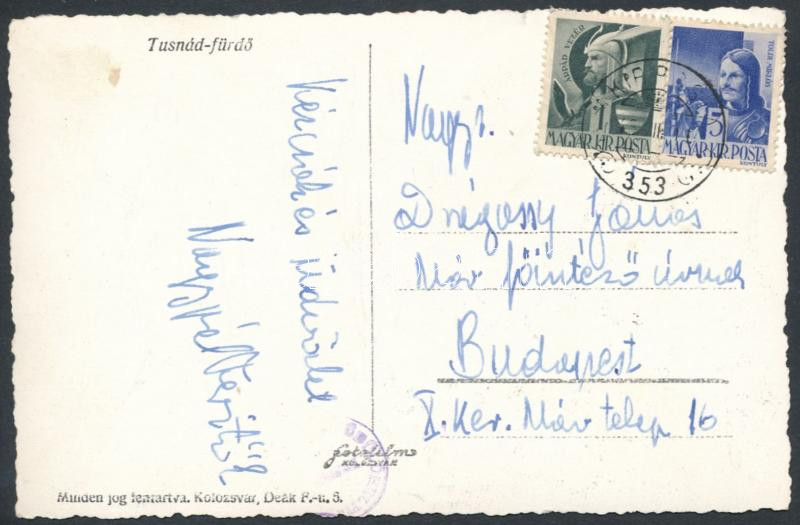 Tusnád-fürdő
Kézcsók és üdvözlet
Nagy
Minden jog fentartva. Kolozsvár, Deák F.-u. 3.
fotofilm
KOLOZSVÁR
ÁRPÁD VEZÉR
1
MAGYAR KIR. POSTA
KONTULY
TOLDI MIKLÓS
5
MAGYAR KIR. POSTA
KONTULY
353
Nags.
Drégossy János
Máv főintéző úrnak
Budapest
X. Ker. Máv telep 16